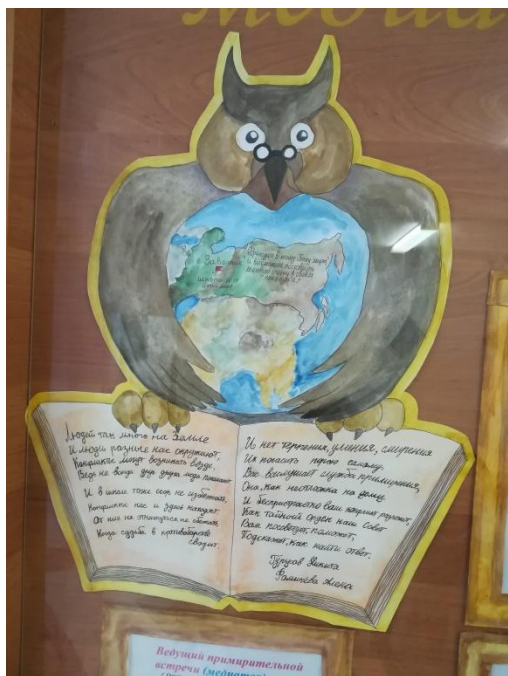 Медиа
Людей так много на Земле
И люди разные нас окружают.
Конфликты могут возникать везде,
Ведь не всегда друг друга люди понимают.
И в школе тоже ссор не избежать,
Конфликты нас и здесь находят
От них не откупиться не сбежать,
Когда судьба в противоборстве
сводит.
И нет терпения, умения, смирения
Их погасить порою самому.
Вас выслушает служба примирения,
Она, как неотложка на дому.
И беспристрастно ваш конфликт разрулит,
Как тайный орден наш совет
Вам посоветует, поможет,
Подскажет, как найти ответ.
Никита
Алена
Ведущий примирительной
встречи (медиатор)